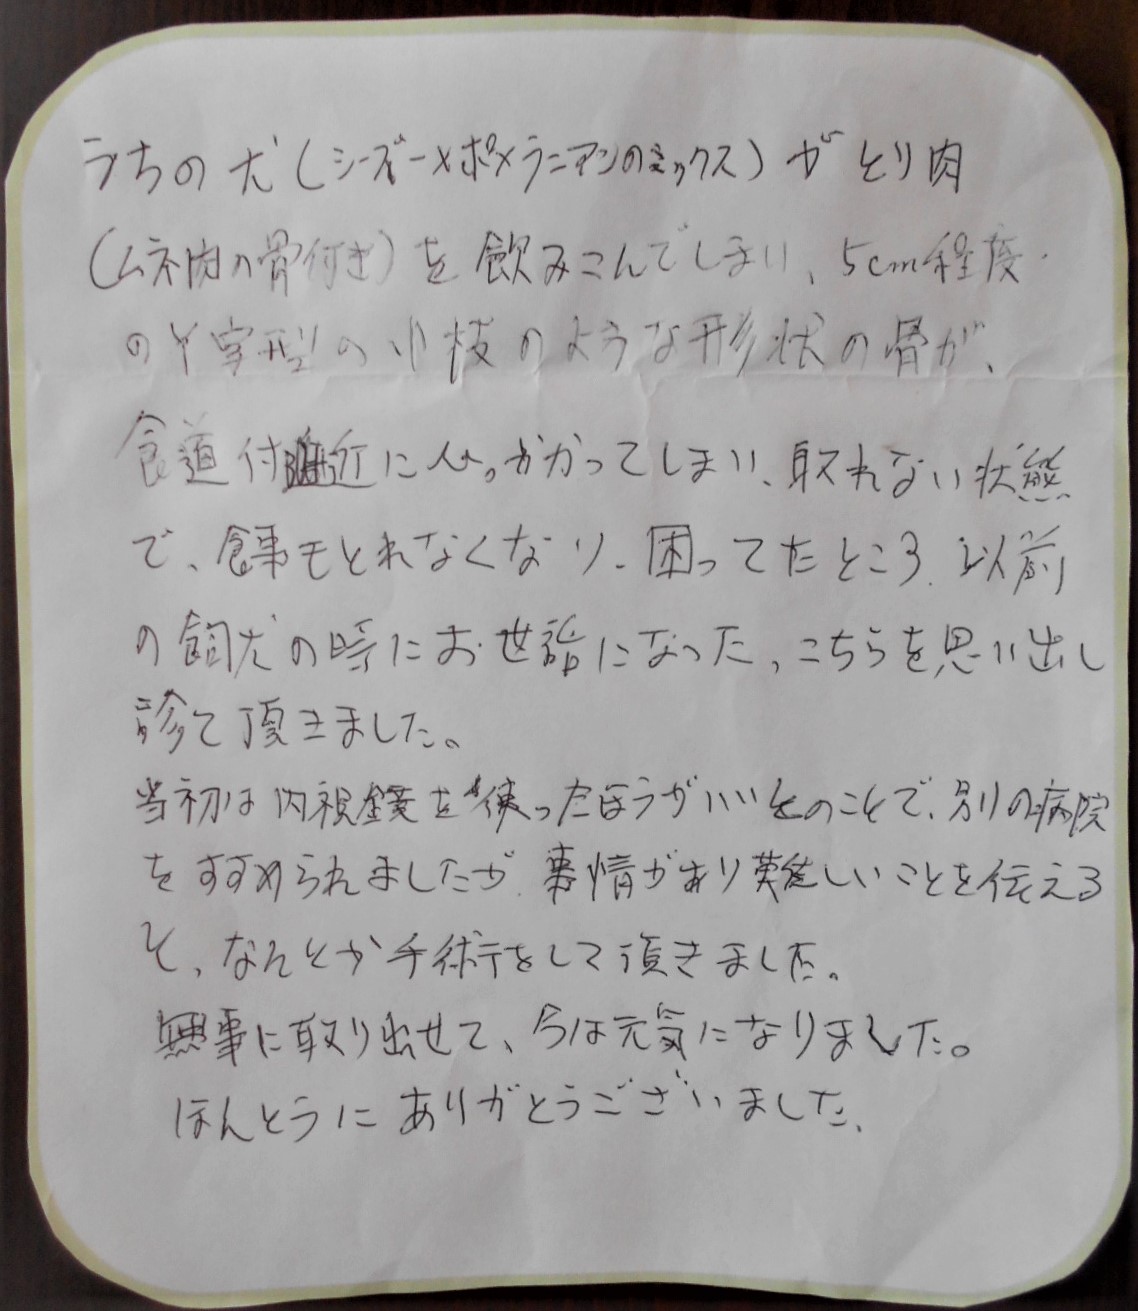 うちの犬(シーズー×ポメラニアンのミックス)がとり肉
(ムネ肉の骨付き)を飲みこんでしまい、5cm程度
のY字型の小枝のような形状の骨が、
食道付近にひっかかってしまい、取れない状態
で、食事もとれなくなり、困ってたところ、以前
の飼犬の時にお世話になった、こちらを思い出し
診て頂きました。
当初は内視鏡を使ったほうがいいとのことで、別の病院
をすすめられましたが、事情があり難しいことを伝える
と、なんとか手術をして頂きました。
無事に取り出せて、今は元気になりました。
ほんとうにありがとうございました。